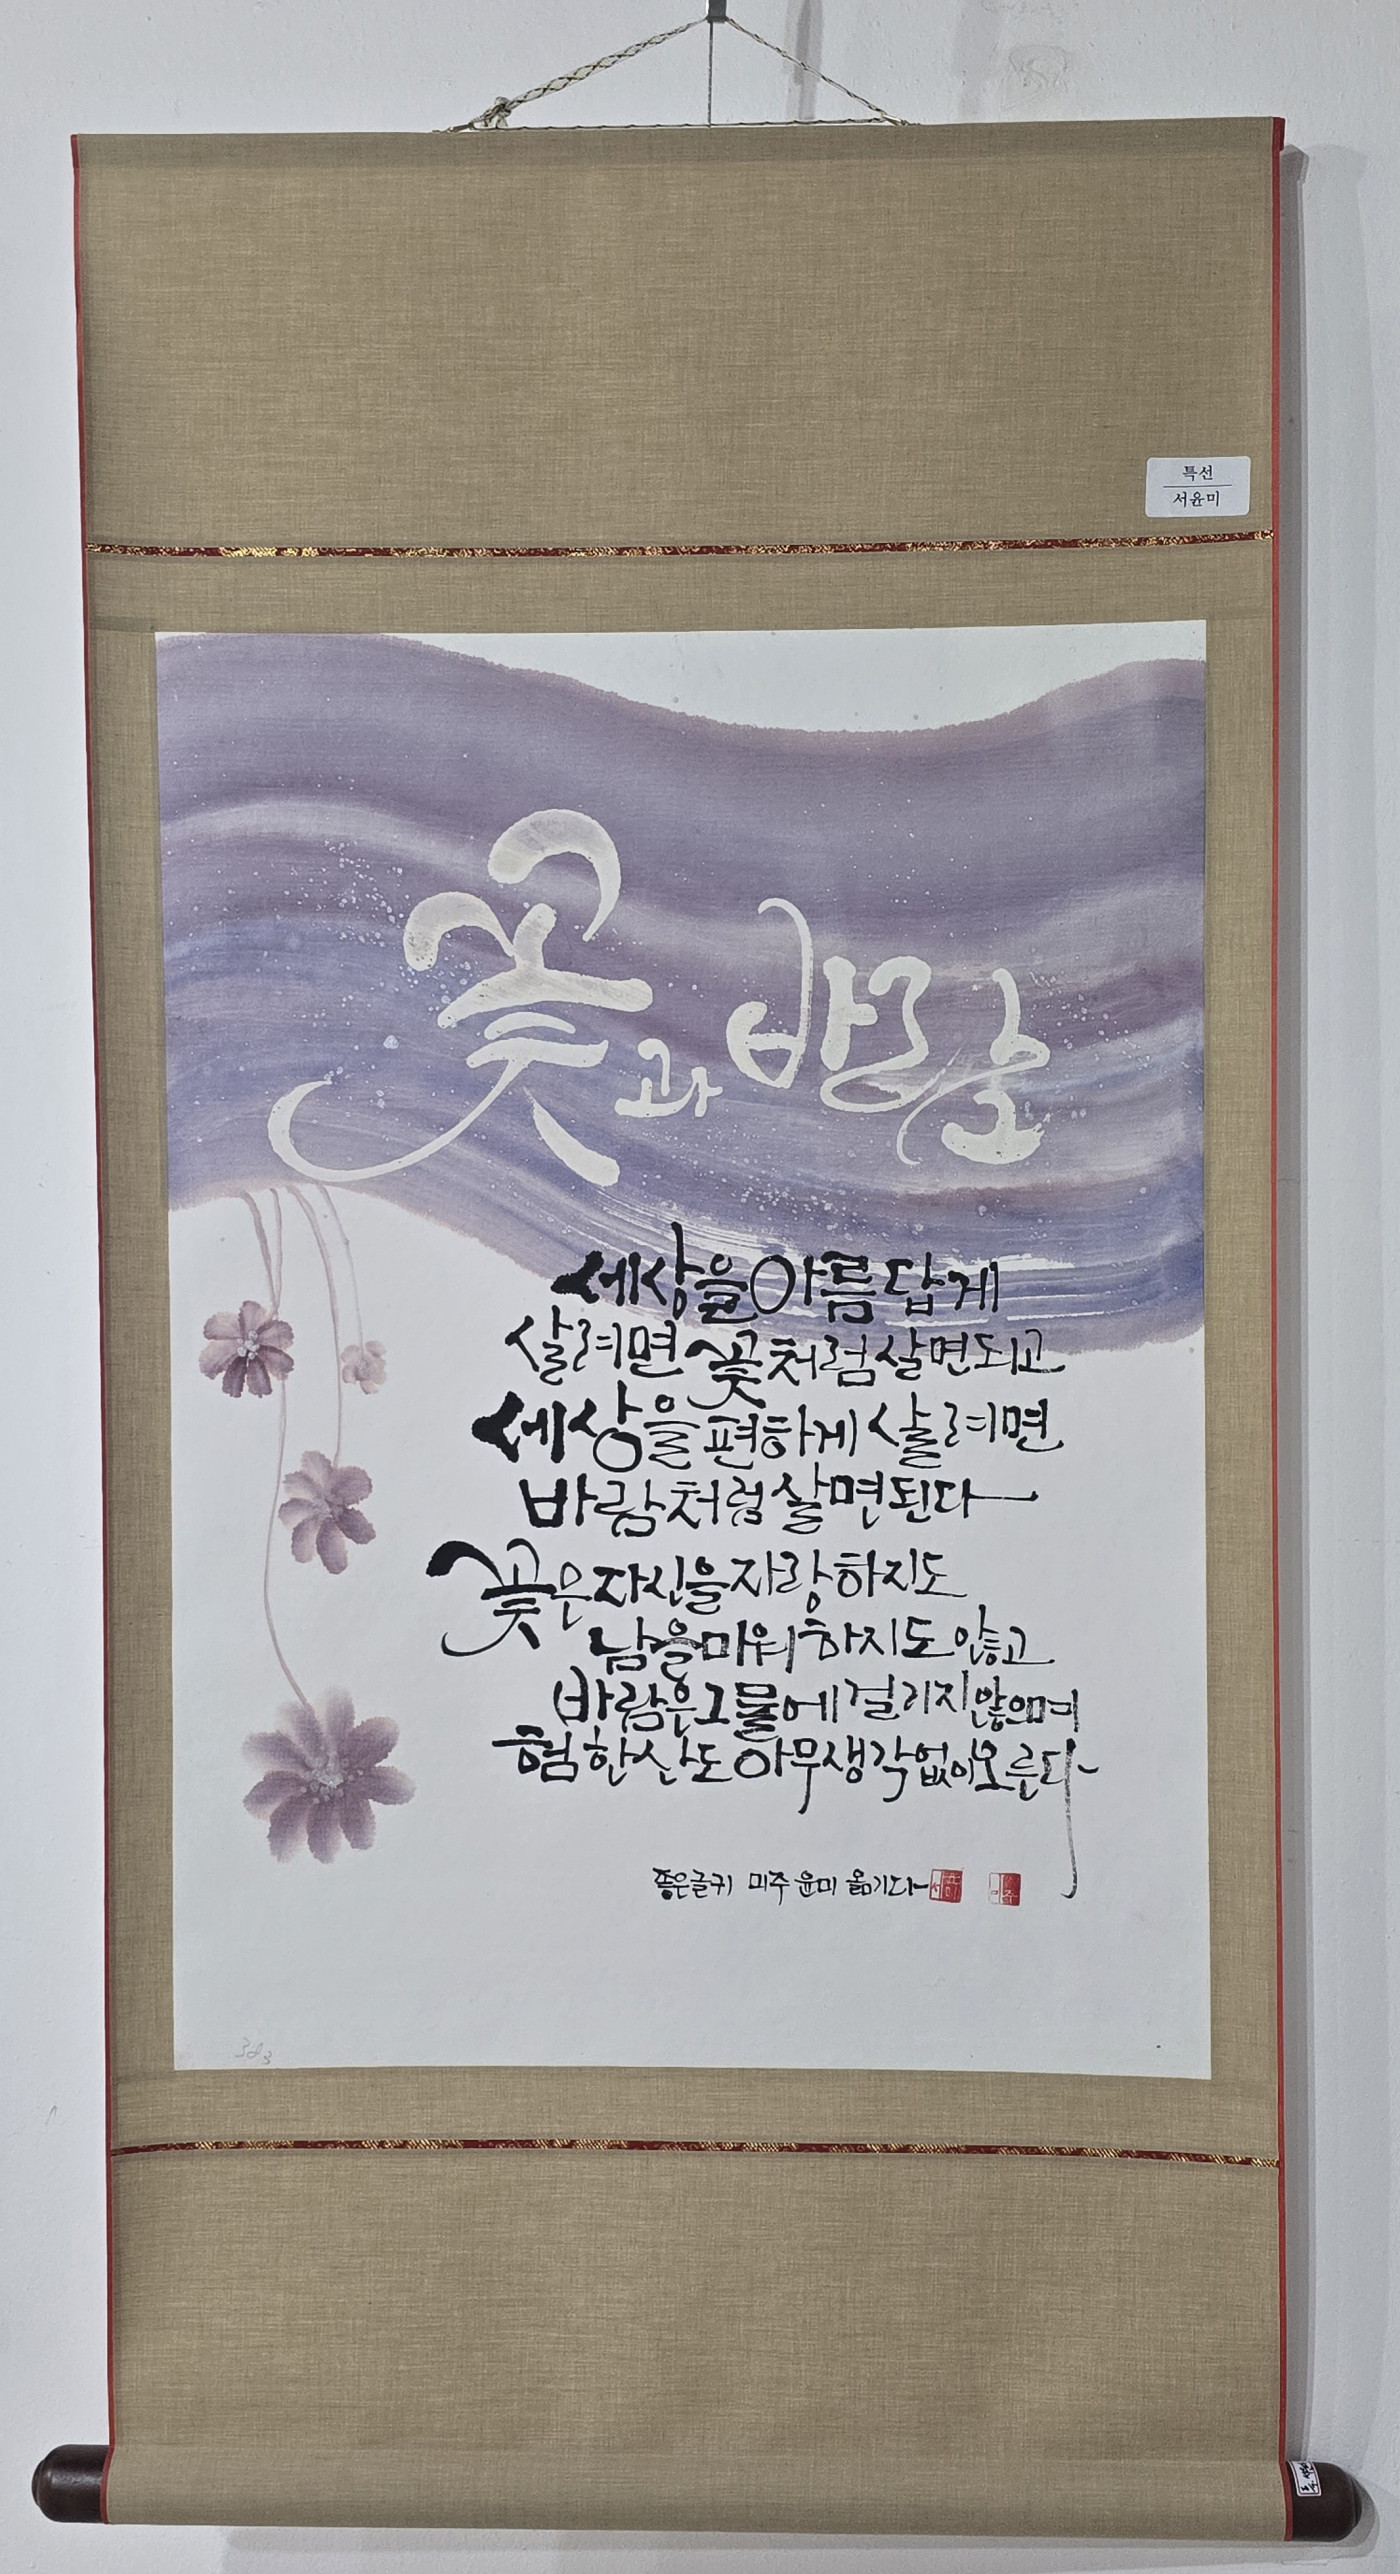 특선
서윤미
꽃과 바람
세상을 아름답게
살려면 꽃처럼 살면 되고
세상을 편하게 살려면
바람처럼 살면 된다
꽃은 자신을 자랑하지도
남을 미워하지도 않고
바람은 그물에 걸리지 않으며
험한 산도 아무 생각없이 오른다
좋은글귀 미주 윤미 옮기다